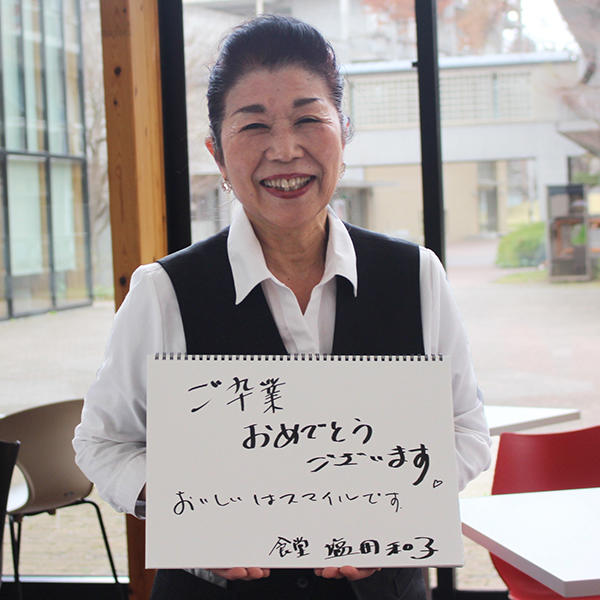 ご卆業
おめでとう
ございます♡
おいしいはスマイルです.
食堂 塩田和子